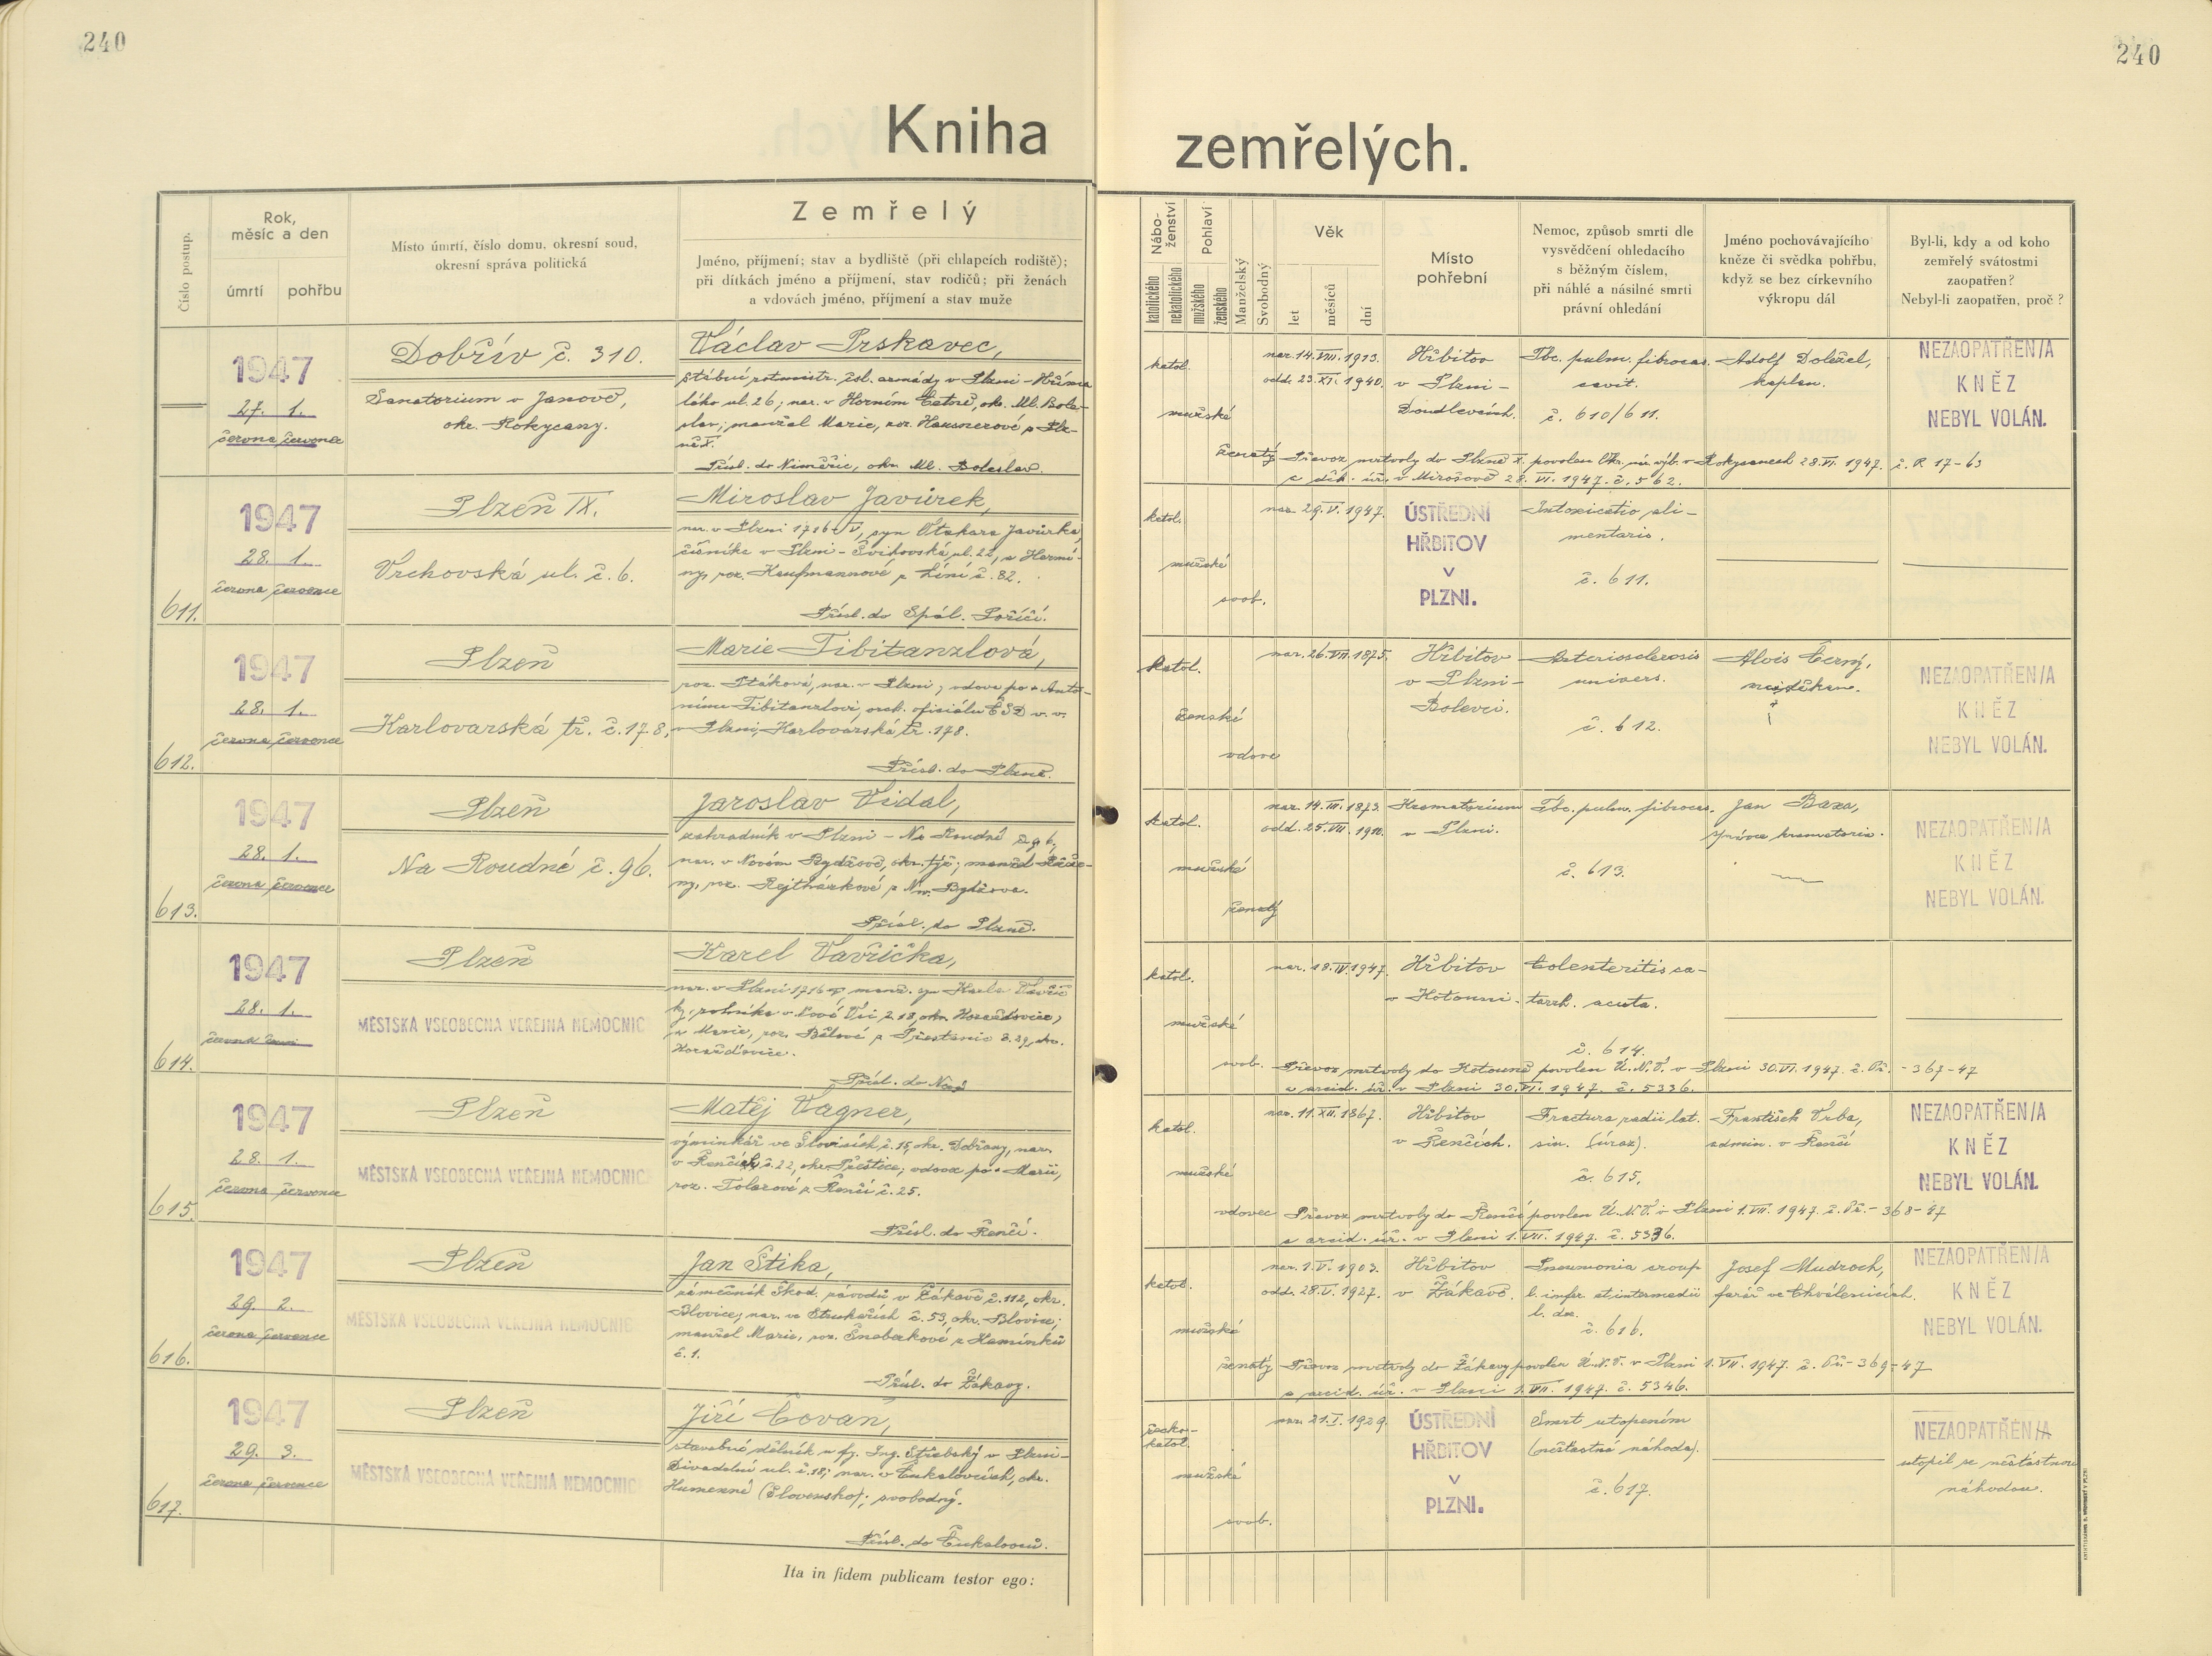 240
240
Kniha
zemřelých.
Číslo postup.
Rok,
měsíc a den
úmrtí
pohřbu
Místo úmrtí, číslo domu, okresní soud,
okresní správa politická
Zemřelý
Jméno, příjmení; stav a bydliště (při chlapcích rodiště);
při dítkách jméno a příjmení, stav rodičů; při ženách
a vdovách jméno, příjmení a stav muže
Nábo-
ženství
katolického
nekatolického
Pohlaví
mužského
ženského
Manželský
Svobodný
Věk
let
měsíců
dní
Místo
pohřební
Nemoc, způsob smrti dle
vysvědčení ohledacího
s běžným číslem,
při náhlé a násilné smrti
právní ohledání
Jméno pochovávajícího
kněze či svědka pohřbu,
když se bez církevního
výkropu dál
Byl-li, kdy a od koho
zemřelý svátostmi
zaopatřen?
Nebyl-li zaopatřen, proč?
1947
27. 1.
června července
Dobřív č. 310.
Sanatorium v Janově,
okr. Rokycany.
Václav Prskavec,
štábní rotmistr. čsl. armády v Plzni-
ul. 26; nar. v Horním Cetně, okr. Ml. Bole-
slav; manžel Marie, roz. Hausnerové z Plz-
ně X.
Přísl. do Niměřic, okr. Ml. Boleslav.
katol.
mužské
ženatý
nar. 14. VIII. 1913.
odd. 23. XI. 1940.
Hřbitov
v Plzni-
Doudlevcích.
Tbc. pulm. fibrocas.
cavit.
č. 610/611.
Adolf Doležel,
kaplan.
NEZAOPATŘEN/A
KNĚZ
NEBYL VOLÁN.
Převoz mrtvoly do Plzně X. povolen Okr. nár. výb. v Rokycanech 28. VI. 1947. č. P. 17-63
a děk. úř. v Mirošově 28. VI. 1947. č. 562.
611.
1947
28. 1.
června července
Plzeň IX.
Vrchovská ul. č. 6.
Miroslav Javůrek,
nar. v Plzni 1716-V, syn Otakara Javůrka,
číšníka v Plzni - Švihovská ul. 22, a Hermí-
ny, roz. Kaufmannové z Líní č. 82.
Přísl. do Spál. Poříčí.
katol.
mužské
svob.
nar. 29. V. 1947.
ÚSTŘEDNÍ
HŘBITOV
V
PLZNI.
Intoxicatio ali-
mentaris.
č. 611.
612.
1947
28. 1.
června července
Plzeň
Karlovarská tř. č. 178,
Marie Tibitanzlová,
roz. Ptáková, nar. v Plzni, vdova po + Anto-
nínu Tibitanzlovi, oficiálu ČSD v. v.
v Plzni, Karlovarská tř. 178.
Přísl. do Plzně.
katol.
ženské
vdova
nar. 26. VII. 1875.
Hřbitov
v Plzni-
Bolevci.
Arteriosclerosis
univers.
č. 612.
Alois Černý,
NEZAOPATŘEN/A
KNĚZ
NEBYL VOLÁN.
613.
1947
28. 1.
června července
Plzeň
Na Roudné č. 96.
Jaroslav Vidal,
zahradník v Plzni - Na Roudné č. 96,
nar. v Novém Bydžově, okr. týž; manžel
roz. Rejthárkové z N. Bydžova.
Přísl. do Plzně.
katol.
mužské
ženatý
nar. 14. III. 1873.
odd. 25. VII. 1911.
Krematorium
v Plzni.
Tbc. pulm. fibrocas.
č. 613.
Jan Baxa,
správce krematoria.
NEZAOPATŘEN/A
KNĚZ
NEBYL VOLÁN.
614.
1947
28. 1.
Plzeň
MĚSTSKÁ VŠEOBECNÁ VEŘEJNÁ NEMOCNIC
Karel Vavřička,
nar. v Plzni 1716-V, manž. syn Karla Vavřič-
ky, rolníka v Nové Vsi č. 18, okr. Horažďovice,
a Marie, roz. Bělové z č. 29, okr.
Horažďovice.
Přísl. do
katol.
mužské
svob.
nar. 18. IV. 1947.
Hřbitov
v Kotouni.
Colenteritis ca-
tarrh. acuta.
č. 614.
Převoz mrtvoly do Kotouně povolen Ú.N.V. v Plzni 30. VI. 1947. č. Př. - 367-47
a arcid. úř. v Plzni 30. VI. 1947. č. 5336.
615.
1947
28. 1.
června července
Plzeň
MĚSTSKÁ VŠEOBECNÁ VEŘEJNÁ NEMOCNIC
Matěj Vagner,
výminkář ve Šlovicích č. 15, okr. Dobřany, nar.
v Řenčích č. 22, okr. Přeštice; vdovec po + Marii,
roz. Tolarové z Řenčí č. 25.
Přísl. do Řenčí.
katol.
mužské
vdovec
nar. 11. XII. 1867.
Hřbitov
v Řenčích.
Fractura radii lat.
sin. (úraz).
č. 615.
František Vrba,
admin. v Řenčí
NEZAOPATŘEN/A
KNĚZ
NEBYL VOLÁN.
Převoz mrtvoly do Řenčí povolen Ú.N.V. v Plzni 1. VII. 1947. č. Př. - 368-47
a arcid. úř. v Plzni 1. VII. 1947. č. 5336.
616.
1947
29. 2.
června července
Plzeň
MĚSTSKÁ VŠEOBECNÁ VEŘEJNÁ NEMOCNIC
Jan Štika,
zámečník Škod. závodů v Žákavě č. 112, okr.
Blovice; nar. ve Struhařích č. 53, okr. Blovice;
manžel Marie, roz. Šneberkové z Kamínku
č. 1.
Přísl. do Žákavy.
katol.
mužské
ženatý
nar. 1. V. 1903.
odd. 28. V. 1927.
Hřbitov
v Žákavě.
Pneumonia croup
l. infer. et intermedii
l. dex.
č. 616.
Josef Mudroch,
farář ve Chválenicích.
NEZAOPATŘEN/A
KNĚZ
NEBYL VOLÁN.
Převoz mrtvoly do Žákavy povolen Ú.N.V. v Plzni 1. VII. 1947. č. Př. - 369-47
a arcid. úř. v Plzni 1. VII. 1947. č. 5346.
617.
1947
29. 3.
června července
Plzeň
MĚSTSKÁ VŠEOBECNÁ VEŘEJNÁ NEMOCNIC
Jiří Čovan,
stavební dělník u fy. Ing. Střebský v Plzni-
Divadelní ul. č. 18; nar. v Čukalovcích, okr.
Humenné (Slovensko); svobodný.
Přísl. do Čukalovců.
řecko-
katol.
mužské
svob.
nar. 21. I. 1929.
ÚSTŘEDNÍ
HŘBITOV
V
PLZNI.
Smrt utopením
(nešťastná náhoda).
č. 617.
NEZAOPATŘEN/A
utopil se nešťastnou
náhodou.
Ita in fidem publicam testor ego: